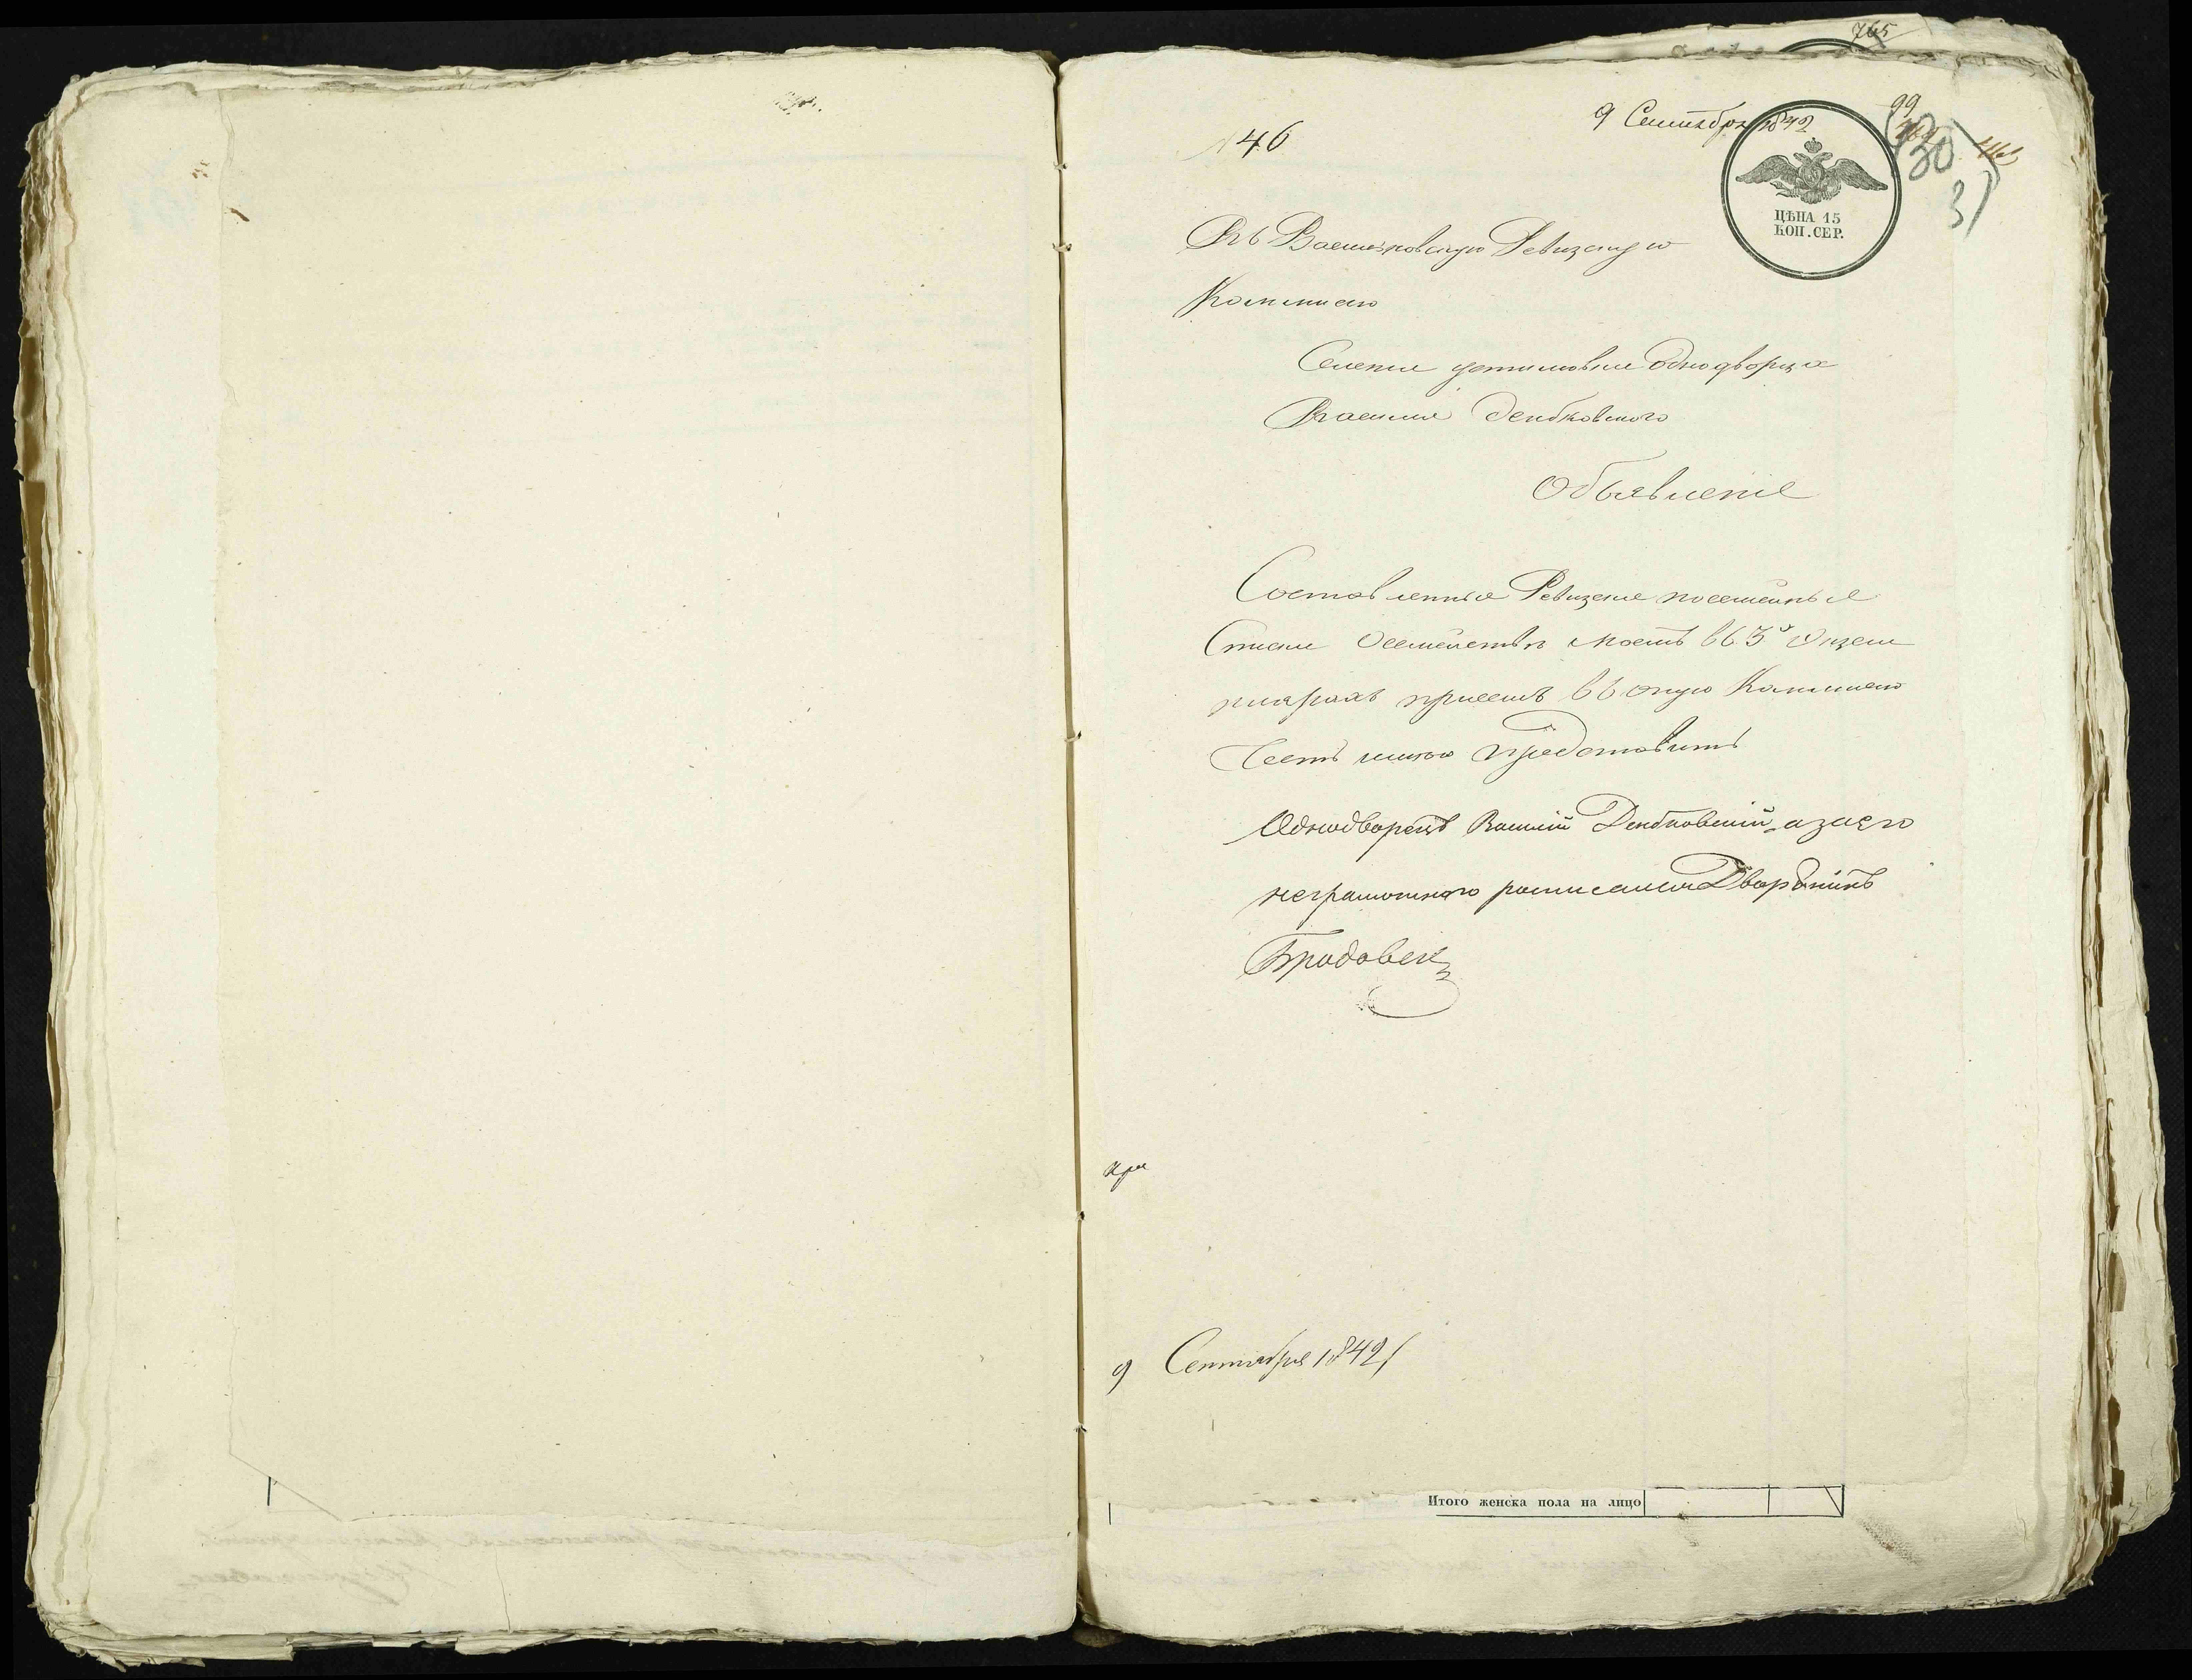 765
№ 46
9 Сентября 1842
99
30
31
ЦѢНА 15
КОП. СЕР.
Въ Ревизскую
Коммисію
Селенія однодворца
Василія Дембковского
Объявленіе
Составленные Ревизскіе посемейные
Списки Осемействѣ моемъ въ 3х Экзем
плярахъ присемъ въ оную Коммисію
Честь имѣю представить
Однодворецъ Василій Дембковскій, азаего
неграмотного росписался Дворянинъ
при
9 Сентября 1842
Итого женска пола на лицо